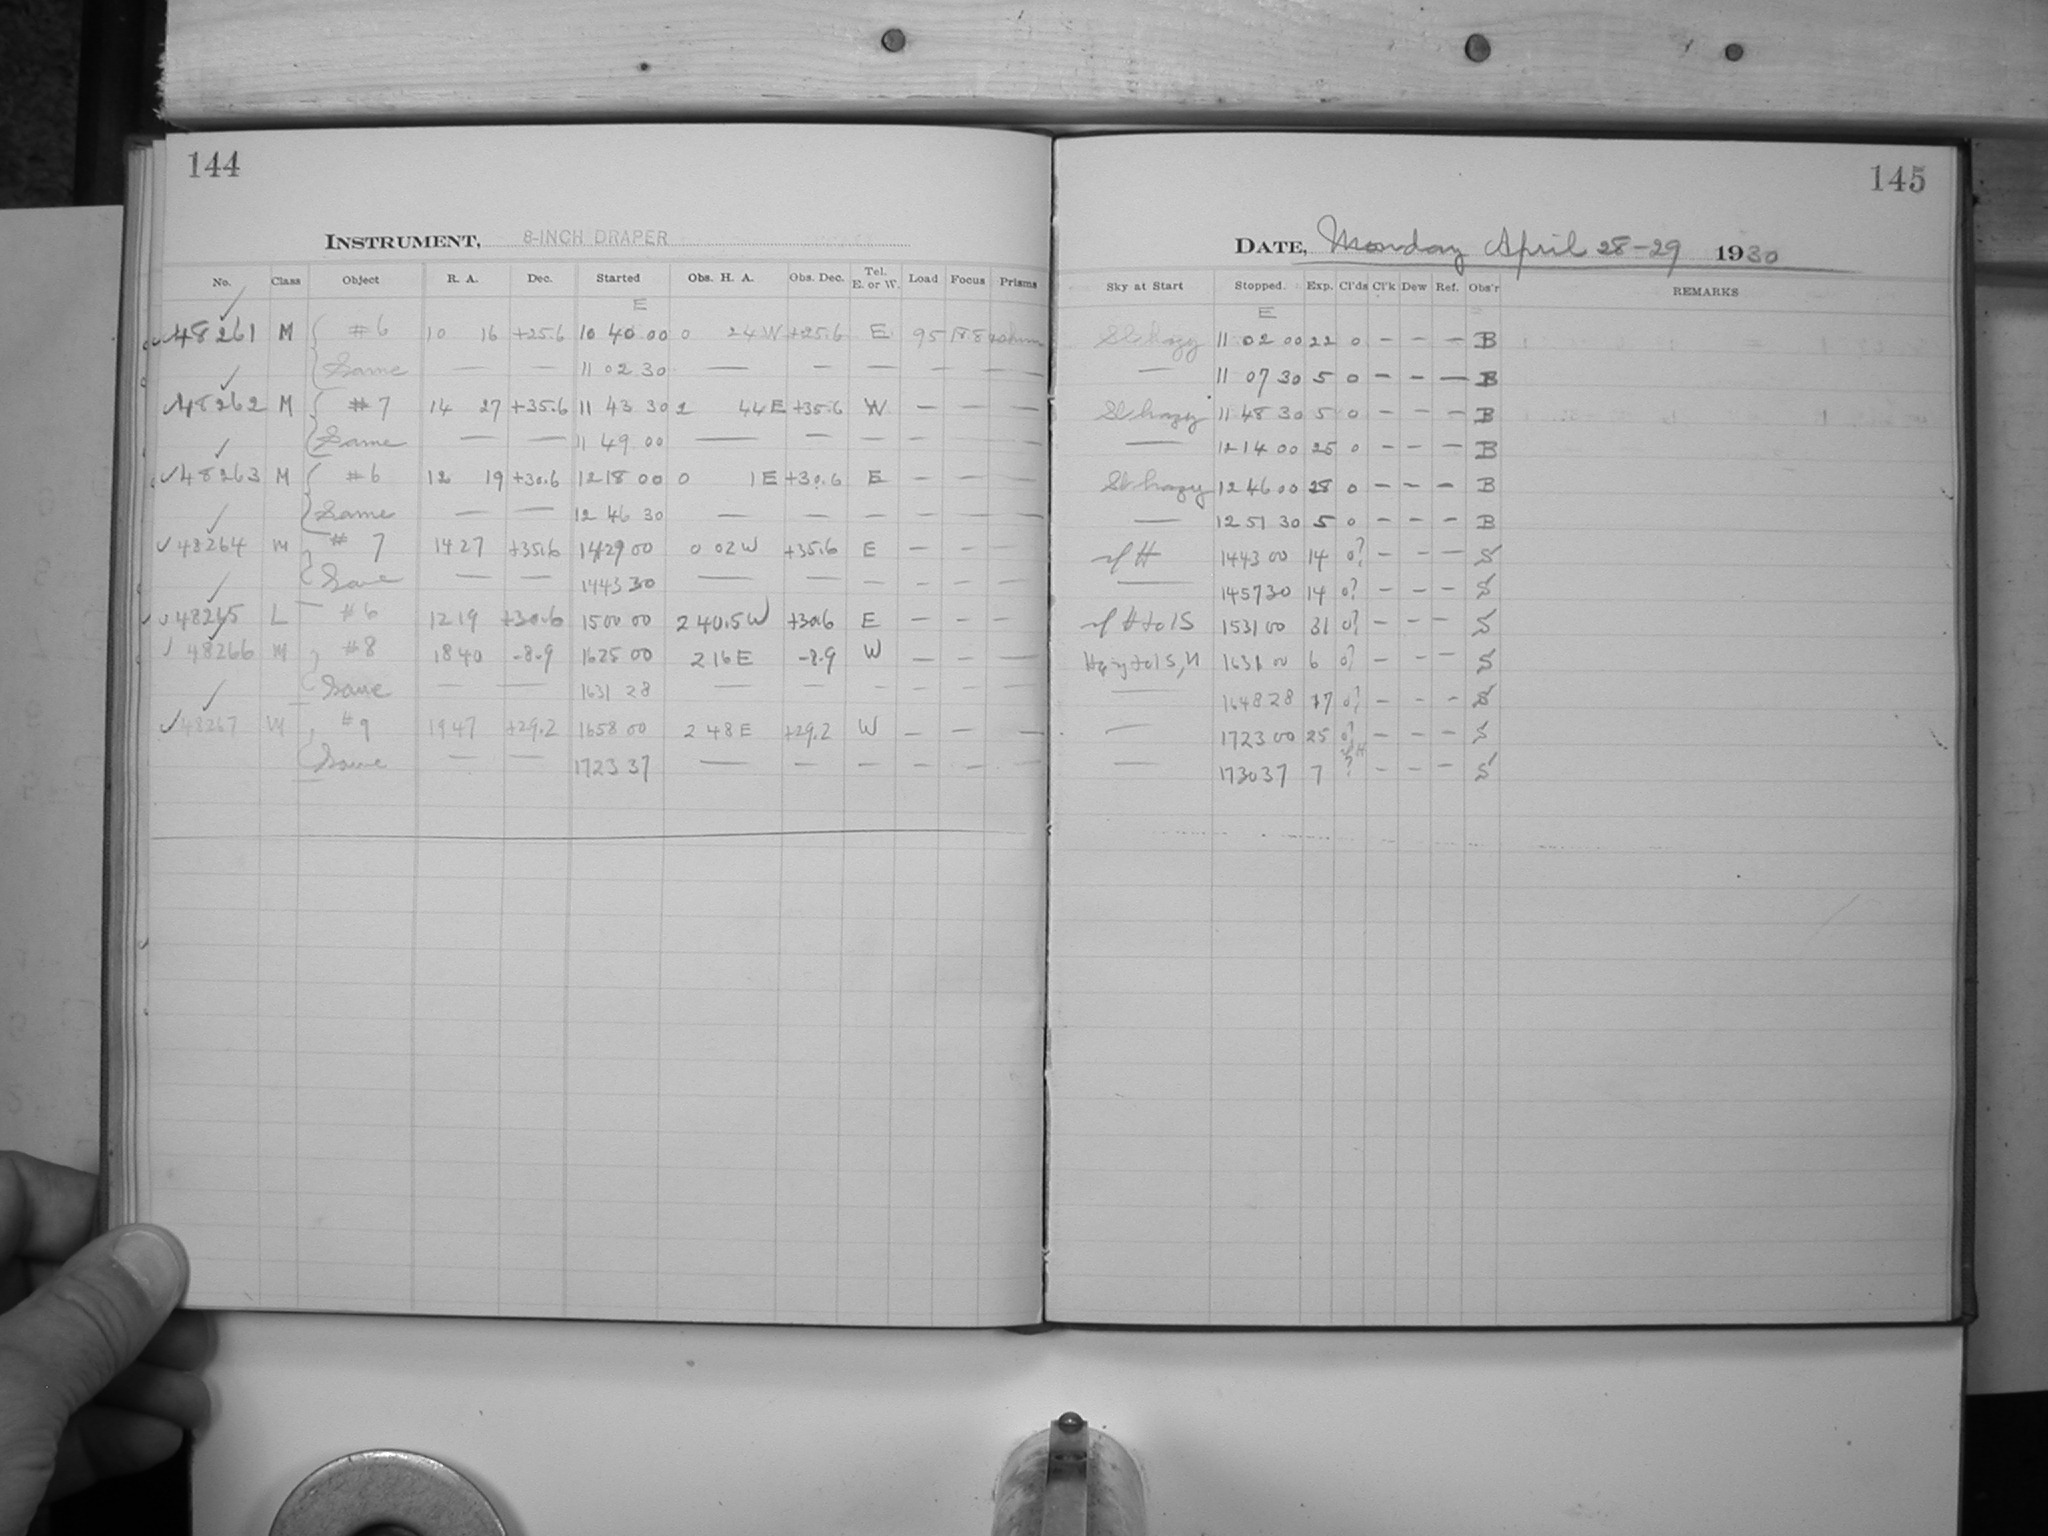 144
INSTRUMENT, 8-INCH DRAPER
No. Class Object R. A. Dec. Started Obs. H. A. Obs. Dec. Tel. E. or W. Load Focus Prisms
E
48261 M #6 10 16 +25.6 10 40 00 0 24 W +25.6 E 95
Same — — 11 02 30 — — — — — —
48262 M #7 14 27 +35.6 11 43 30 2 44 E +35.6 W — — —
Same — — 11 49 00 — — — — — —
48263 M #6 12 19 +30.6 12 18 00 0 1 E +30.6 E — — —
Same — — 12 46 30 — — — — — —
48264 M # 7 14 27 +35.6 14 29 00 0 02 W +35.6 E — — —
Same — — 14 43 30 — — — — — —
48265 L #6 12 19 +30.6 15 00 00 2 40.5 W +30.6 E — — —
48266 M #8 18 40 -8.9 16 25 00 2 16 E -8.9 W — — —
Same — — 16 31 28 — — — — — —
48267 M #9 19 47 +29.2 16 58 00 2 48 E +29.2 W — — —
Same — — 17 23 37 — — — — — —
145
DATE, Monday April 28-29 1930
Sky at Start Stopped. Exp. Cl'ds Cl'k Dew Ref. Obs'r REMARKS
E
Sl hazy 11 02 00 22 0 — — — B
— 11 07 30 5 0 — — — B
Sl hazy 11 48 30 5 0 — — — B
— 12 14 00 25 0 — — — B
Sl hazy 12 46 00 28 0 — — — B
— 12 51 30 5 0 — — — B
H 14 43 00 14 0? — — — S
— 14 57 30 14 0? — — — S
H to 1S 15 31 00 31 0? — — — S
to 1S, 16 31 00 6 0? — — — S
— 16 48 28 17 0? — — — S
— 17 23 00 25 0? — — — S
— 17 30 37 7 ? — — — S